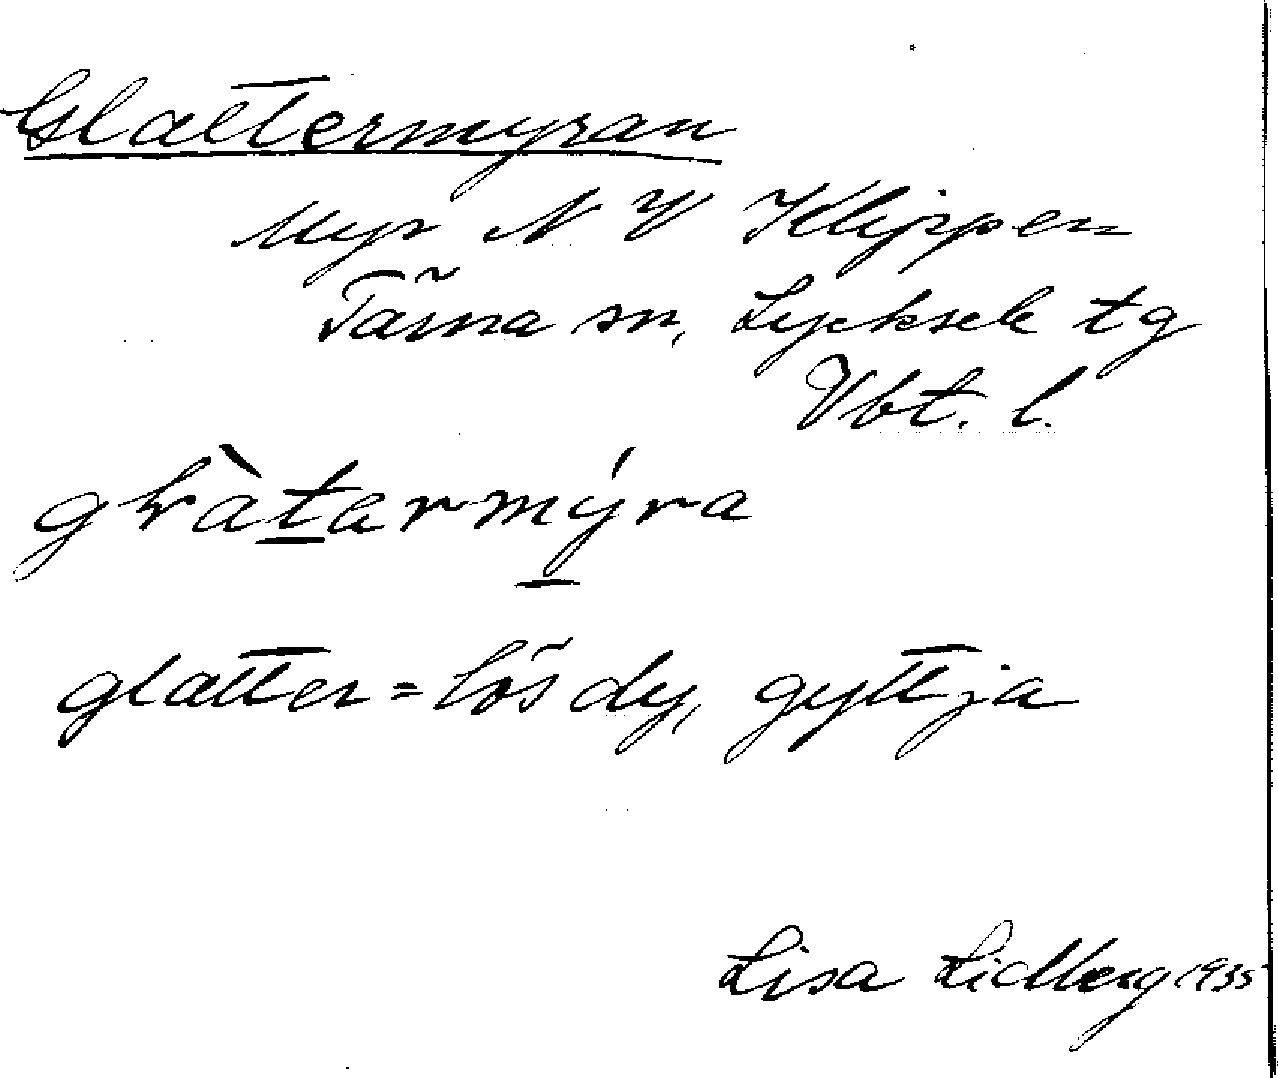 Glattermyran
Myr N V Klippen
Tärna sn, Lycksele tg
Vbt. l.
glatter = lös dy, gyttja
Lisa Lidberg 1935